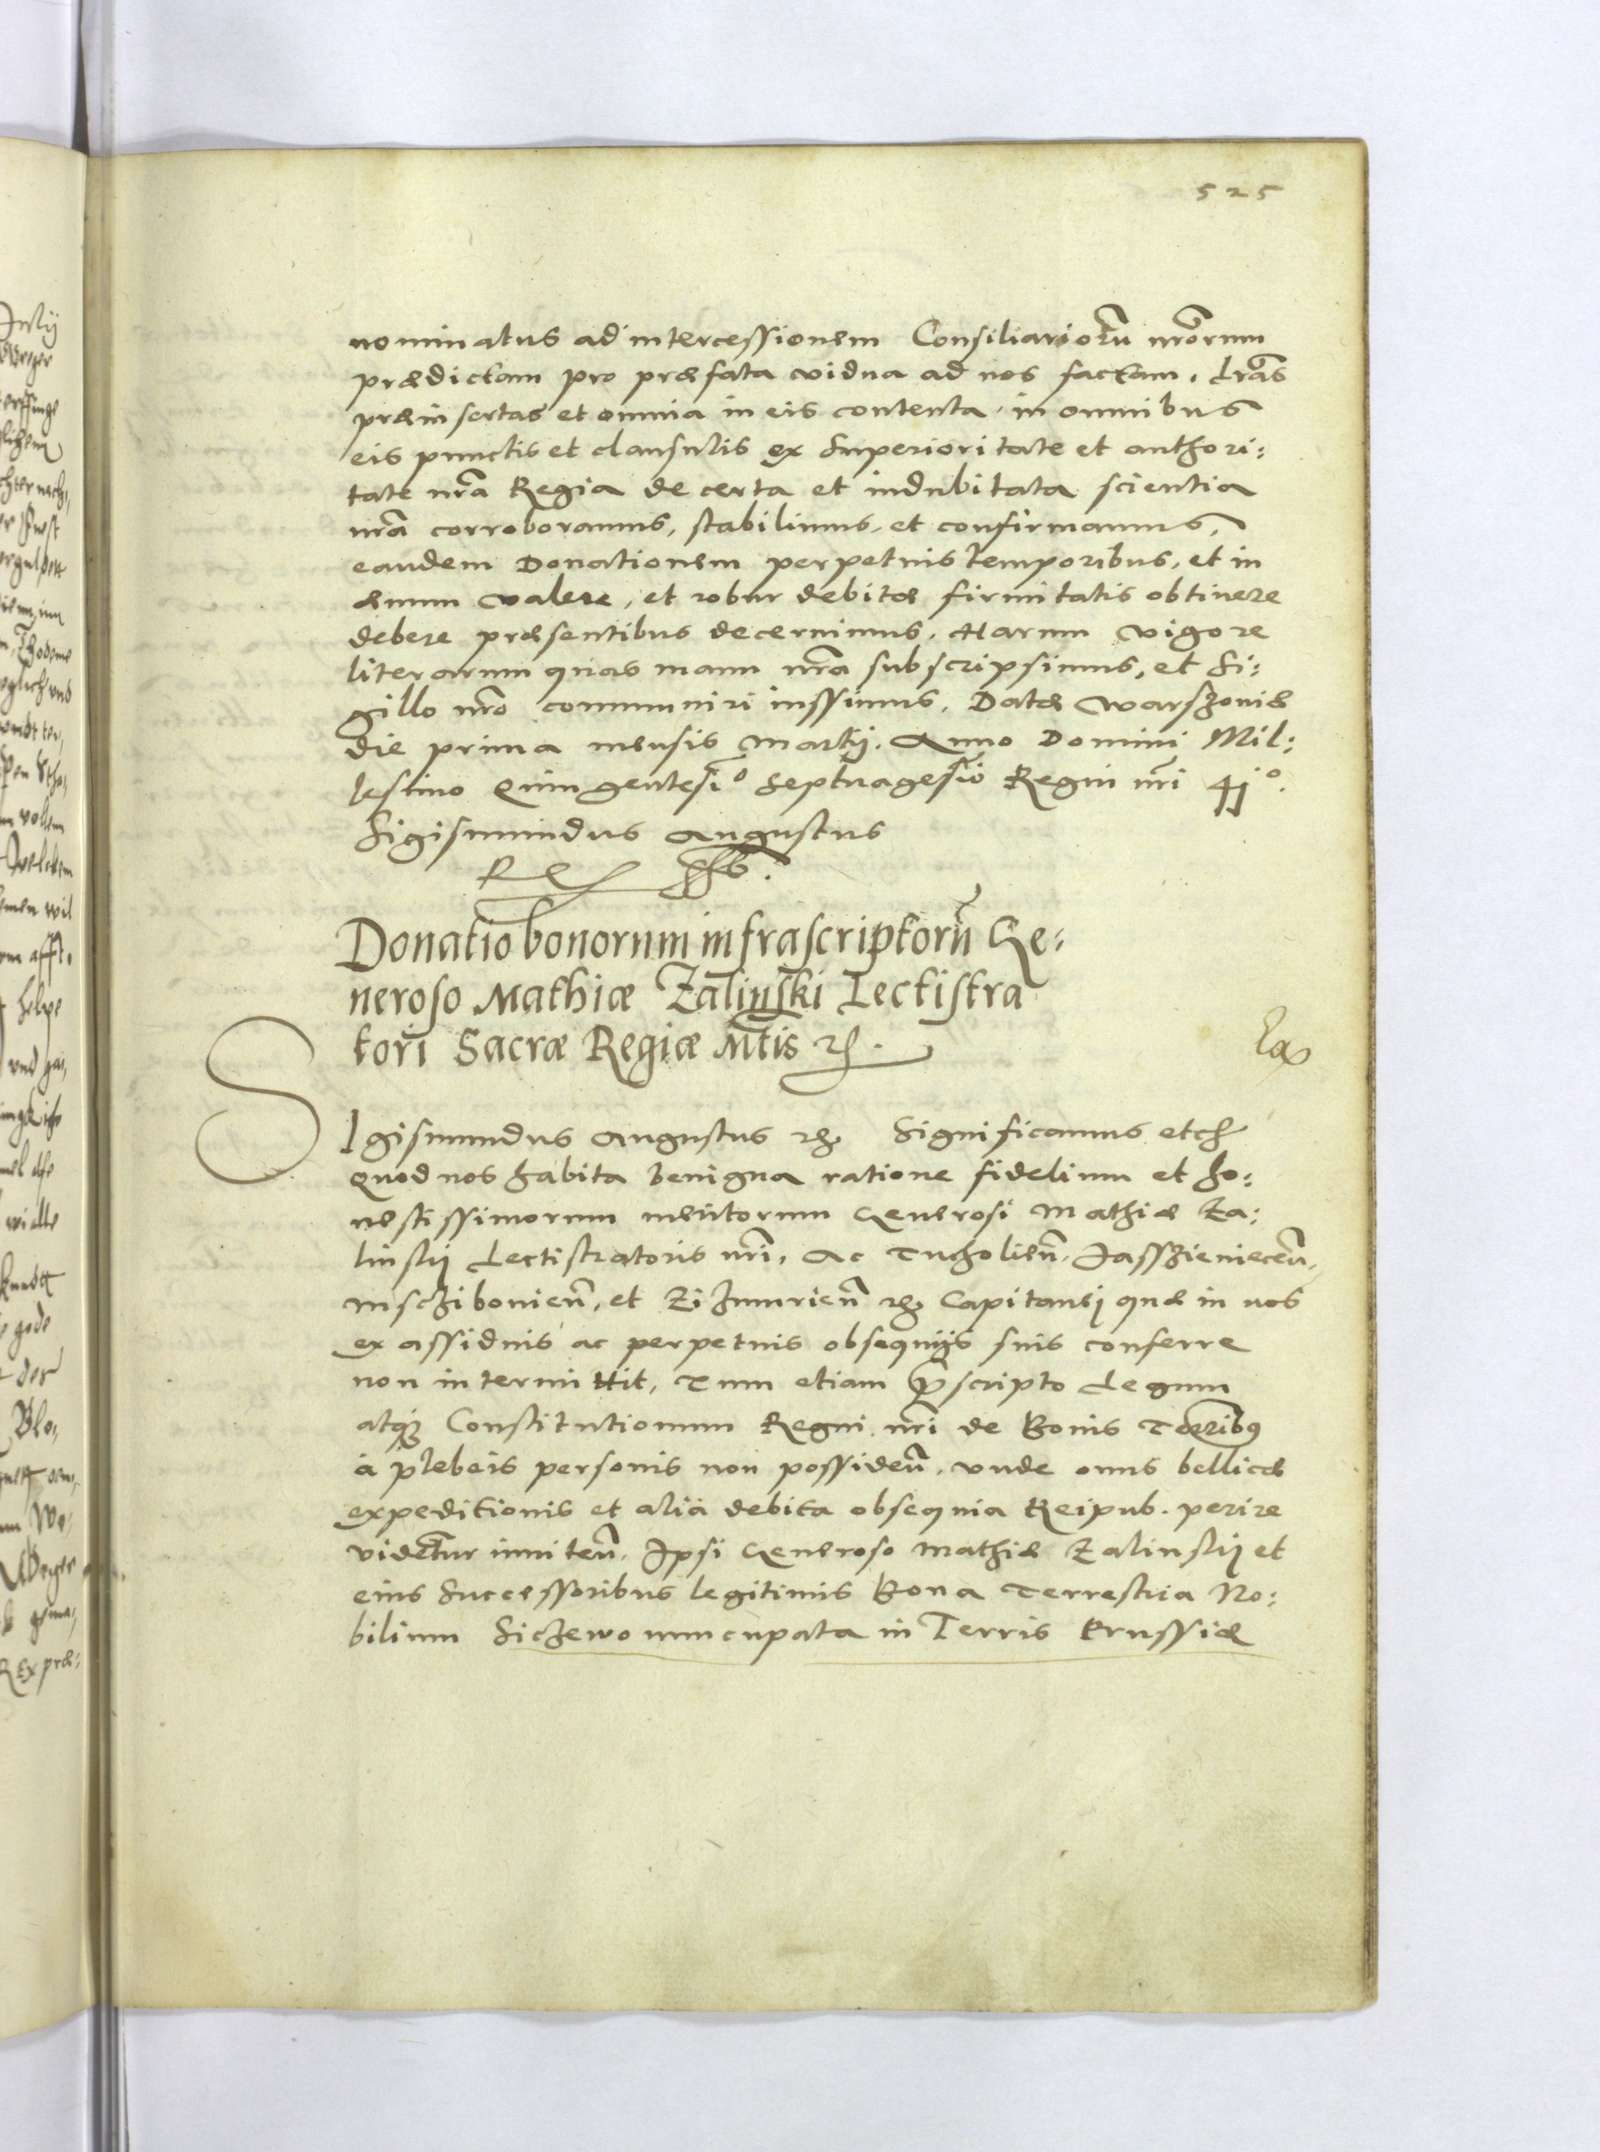 525
nominatus ad intercessionem Consiliariorũ nr̃orum
prædictam pro præfata vidua ad nos factam. Lr̃as
præinsertas et omnia in eis contenta, in omnibus
eis punctis et clausulis ex Superioritate et authori:
tate nr̃a Regia de certa et indubitata scientia
nr̃a corroboramus, stabilimus, et confirmamus,
eandem Donationem perpetuis temporibus, et in
æuum valere, et robur debitæ firmitatis obtinere
debere præsentibus decernimus. Harum vigore
literarum quas manu nr̃a subscripsimus, et Si:
gillo nr̃o communiri iussimus. Datæ Warszoniæ
die prima mensis Martij. Anno Domini Mil:
lesimo Quingentesĩo Septuagesĩo Regni nr̃i 41º.
Sigismundus Augustus
Rex sßt.
Donatio bonorum infrascriptorũ Ge:
neroso Mathiæ Zalinski Lectistra
tori Sacræ Regiæ Mtis ꝛc.
SIgismundus Augustus ꝛc. Significamus etc
Quod nos habita benigna ratione fidelium et ho:
nestissimorum meritorum Generosi Mathiæ Za:
linskij Lectistratoris nr̃i, Ac Tucholieñ. Jasszienieceñ,
Mscziboniеñ, et Ziżmurieñ ꝛc. Capitanej quæ in nos
ex assiduis ac perpetuis obsequijs suis conferre
non intermittit, Tum etiam P̱scripto Legum
atq́ Constitutionum Regni nr̃i de Bonis Terr̃ibꝰ
à plebeis personis non possideñ. vnde onus bellicæ
expeditionis et alia debita obsequia Reipub. perire
videntur inniteñ. Ipsi Generoso Mathiæ Zalinskij et
eius Successoribus legitimis Bona Terrestria No:
bilium Siczewo nuncupata in Terris Prussiæ